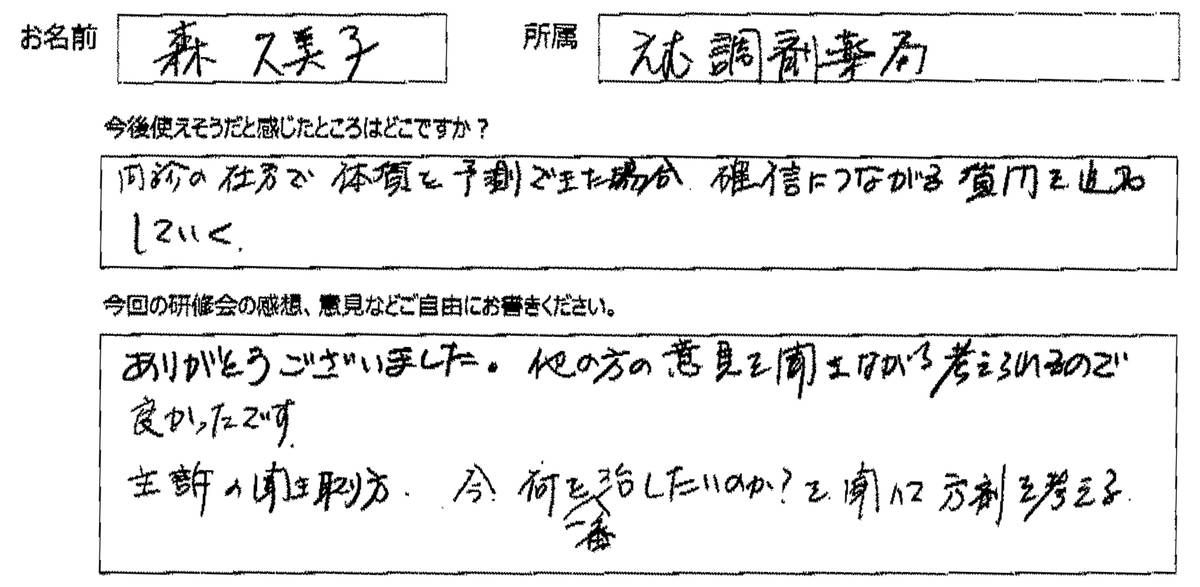 お名前 森 久美子 所属 えむ調剤薬局
今後使えそうだと感じたところはどこですか？
問診の仕方で体質を予測できた場合、確信につながる質問を追加
していく。
今回の研修会の感想、意見などご自由にお書きください。
ありがとうございました。他の方の意見を聞きながら考えられるので
良かったです。
主訴の聞き取り方。今、何を一番治したいのか？を聞いて方剤を考える。